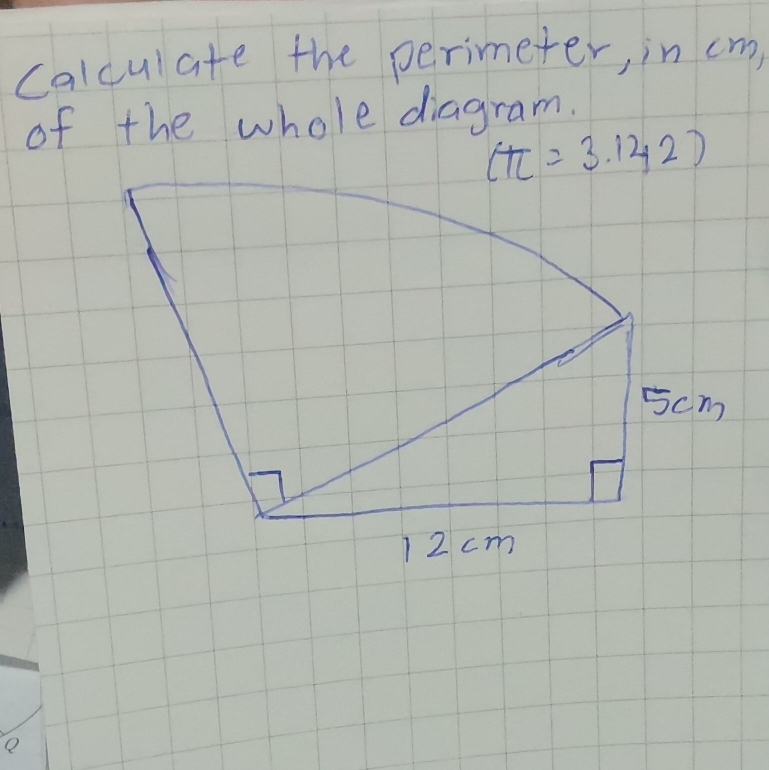 Calculate the perimeter, in cm,
of the whole diagram.
(π = 3.142)
5cm
12cm
Q